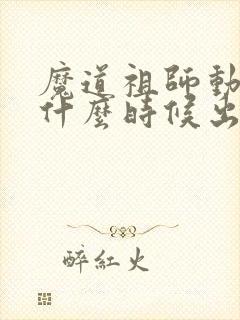 魔道祖師動
什麼時候出
醉紅火